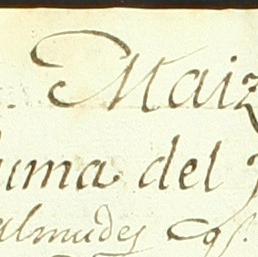 Maiz
uma del
almudes